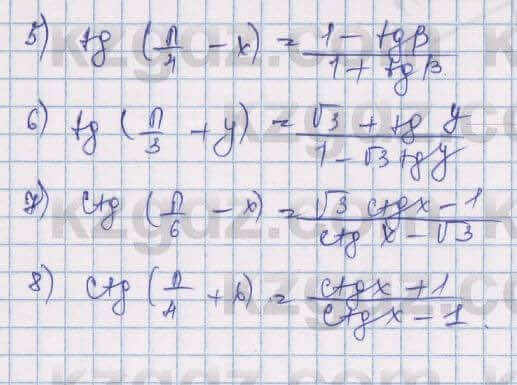 5) tg (π/4 - x) = (1 - tgβ)/(1 + tgβ)
6) tg (π/3 + y) = (√3 + tg y)/(1 - √3 tgy)
7) ctg (π/6 - x) = (√3 ctgx - 1)/(ctg x - √3)
8) ctg (π/4 + x) = (ctgx + 1)/(ctgx - 1).